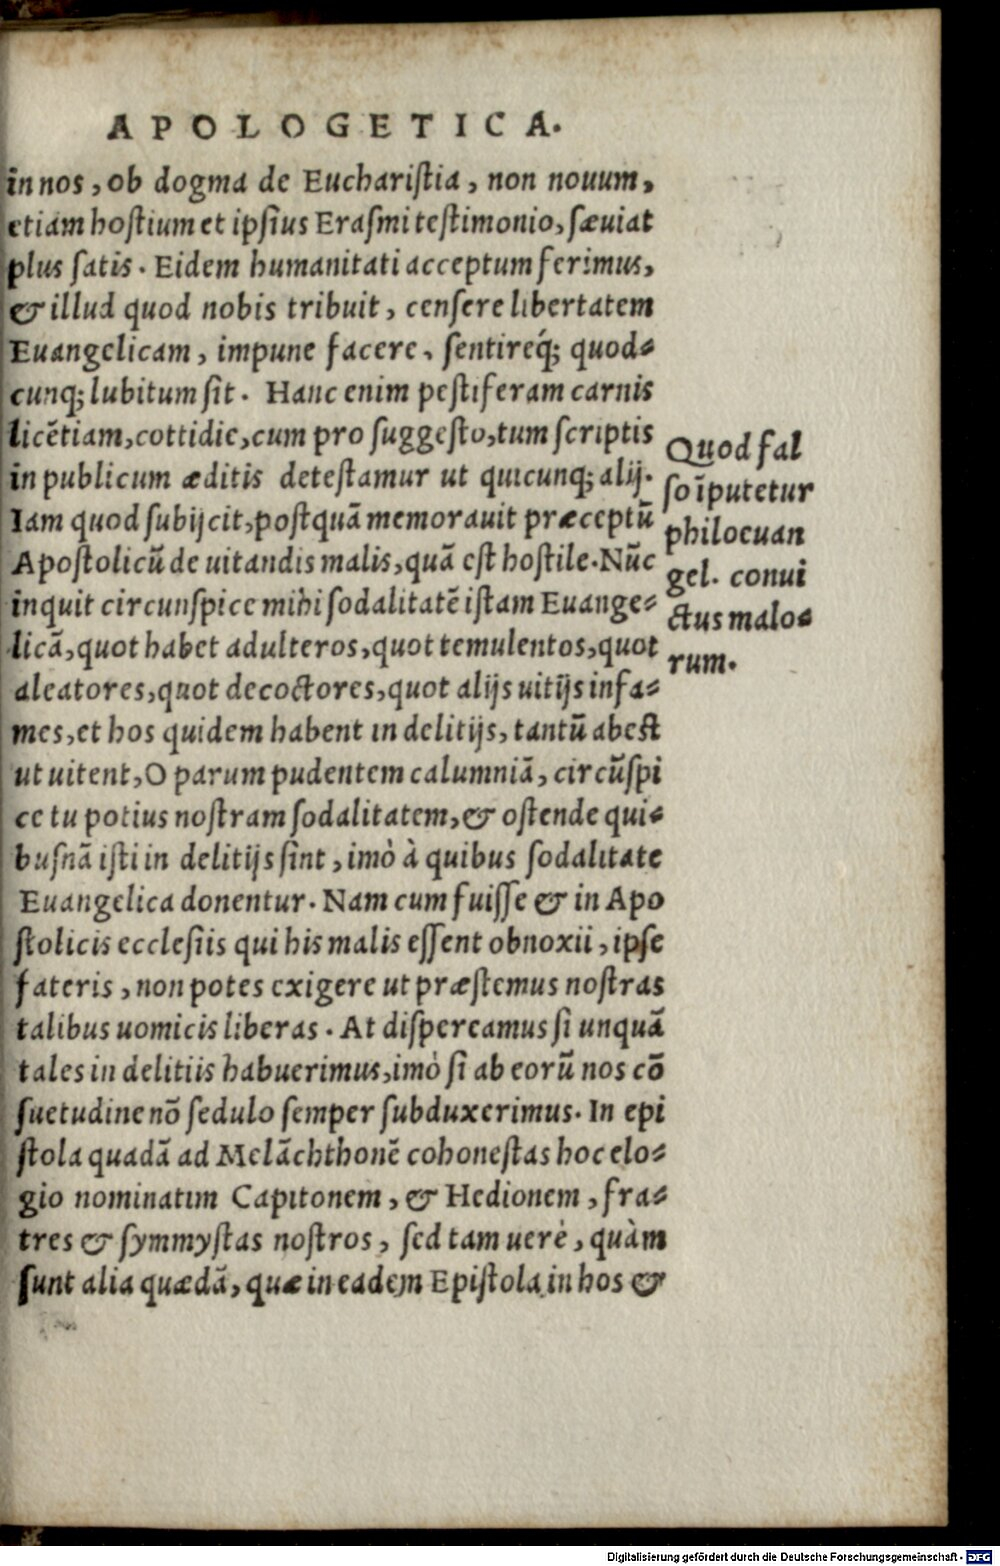 APOLOGETICA.
in nos, ob dogma de Euchariſtia, non nouum,
etiam hoſtium et ipſius Eraſmi teſtimonio, ſæuiat
plus ſatis. Eidem humanitati acceptum ferimus,
& illud quod nobis tribuit, cenſere libertatem
Euangelicam, impune facere, ſentireq́; quod⸗
cunq; lubitum ſit. Hanc enim peſtiferam carnis
licẽtiam, cottidie, cum pro ſuggeſto, tum ſcriptis
in publicum æditis deteſtamur ut quicunq; alij.
Iam quod ſubijcit, poſtquã memorauit præceptũ
Apoſtolicũ de uitandis malis, quã eſt hoſtile. Nũc
inquit circunſpice mihi ſodalitatẽ iſtam Euange⸗
licã, quot habet adulteros, quot temulentos, quot
aleatores, quot decoctores, quot alijs uitijs infa⸗
mes, et hos quidem habent in delitijs, tantũ abeſt
ut uitent, O parum pudentem calumniã, circũſpi
ce tu potius noſtram ſodalitatem, & oſtende qui⸗
buſnã iſti in delitijs ſint, imò à quibus ſodalitate
Euangelica donentur. Nam cum fuiſſe & in Apo
ſtolicis eccleſiis qui his malis eſſent obnoxii, ipſe
fateris, non potes exigere ut præſtemus noſtras
talibus uomicis liberas. At diſpereamus ſi unquã
tales in delitiis habuerimus, imò ſi ab eorũ nos cõ
ſuetudine nõ ſedulo ſemper ſubduxerimus. In epi
ſtola quadã ad Melãchthonẽ cohoneſtas hoc elo⸗
gio nominatim Capitonem, & Hedionem, fra⸗
tres & ſymmyſtas noſtros, ſed tam uerè, quàm
ſunt alia quædã, quæ in eadem Epiſtola in hos &
Quod fal
ſo ĩputetur
philoeuan
gel. conui
ctus malo⸗
rum.
Digitalisierung gefördert durch die Deutsche Forschungsgemeinschaft - DFG